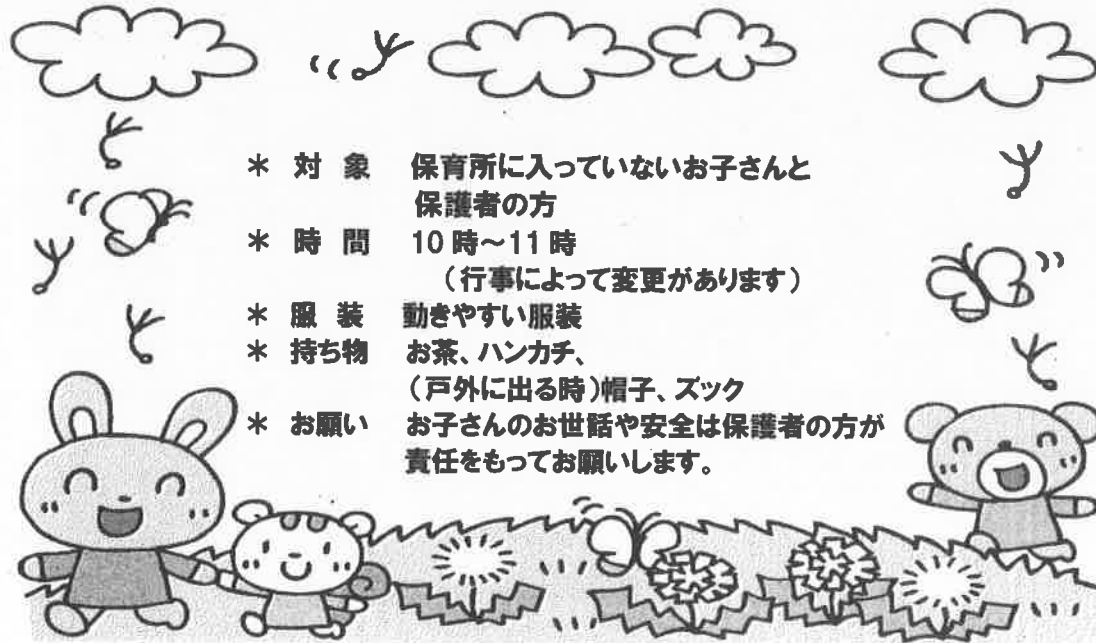 ＊ 対 象 保育所に入っていないお子さんと
保護者の方
＊ 時 間 10時～11時
（行事によって変更があります）
＊ 服 装 動きやすい服装
＊ 持ち物 お茶、ハンカチ、
（戸外に出る時）帽子、ズック
＊ お願い お子さんのお世話や安全は保護者の方が
責任をもってお願いします。